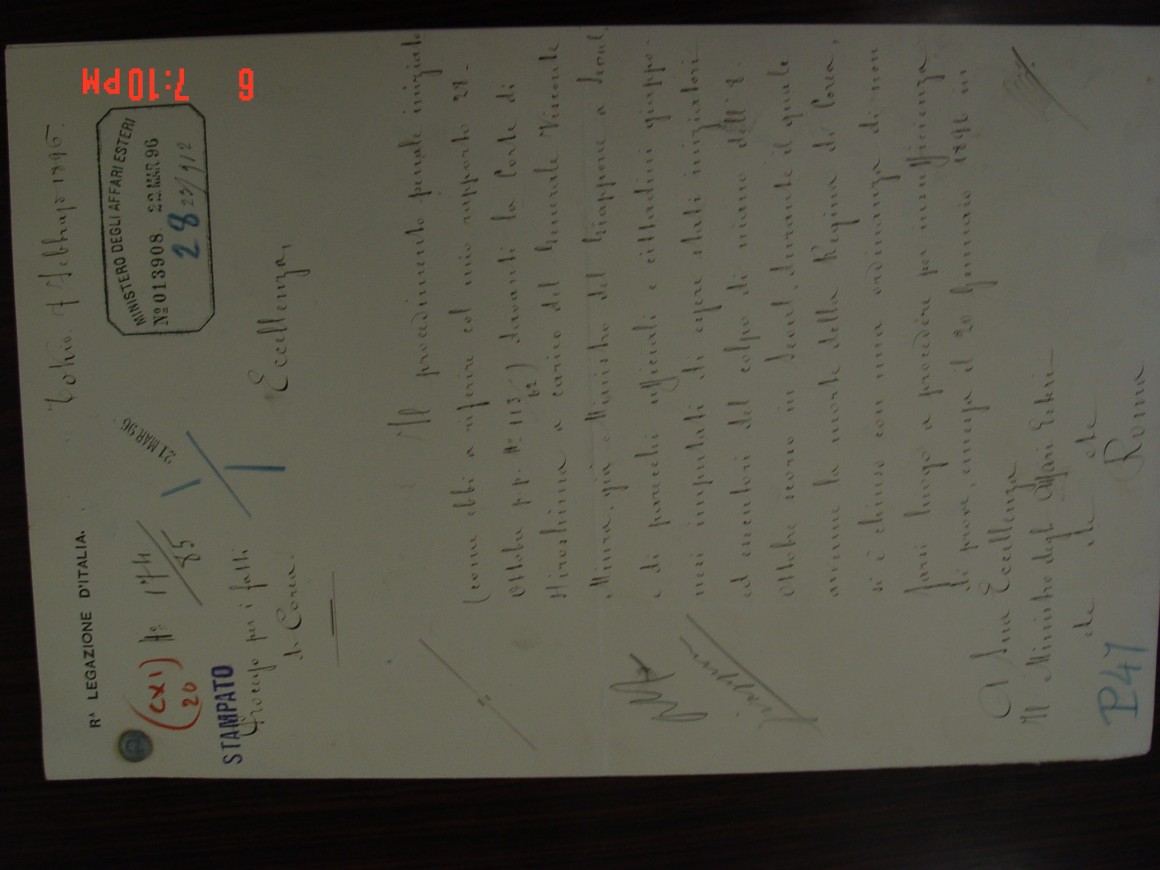 Rᴬ LEGAZIONE D'ITALIA.
Tokio 7 Febbraio 1896.
(CXI)
20
Nº 174
85
21 MAR 96
MINISTERO DEGLI AFFARI ESTERI
Nº 013908 22 MAR 96
28 23/912
STAMPATO
Processo per i fatti
di Corea.
Eccellenza,
Il procedimento penale iniziato
(come ebbi a riferire col mio rapporto 28
Ottobre p.p. Nº 113/62) davanti la Corte di
Hiroshima a carico del Generale Visconte
Miura, già Ministro del Giappone a Seoul,
e di parecchi ufficiali e cittadini giappo-
nesi imputati di essere stati iniziatori
ed esecutori del colpo di mano dell' 8
Ottobre scorso in Seoul, durante il quale
avvenne la morte della Regina di Corea,
si è chiuso con una ordinanza di non
farsi luogo a procedere per insufficienza
di prove, emessa il 20 Gennaio 1896 in
Giappone
A Sua Eccellenza
Il Ministro degli Affari Esteri
etc etc etc
Roma
P.47
6 7:10PM